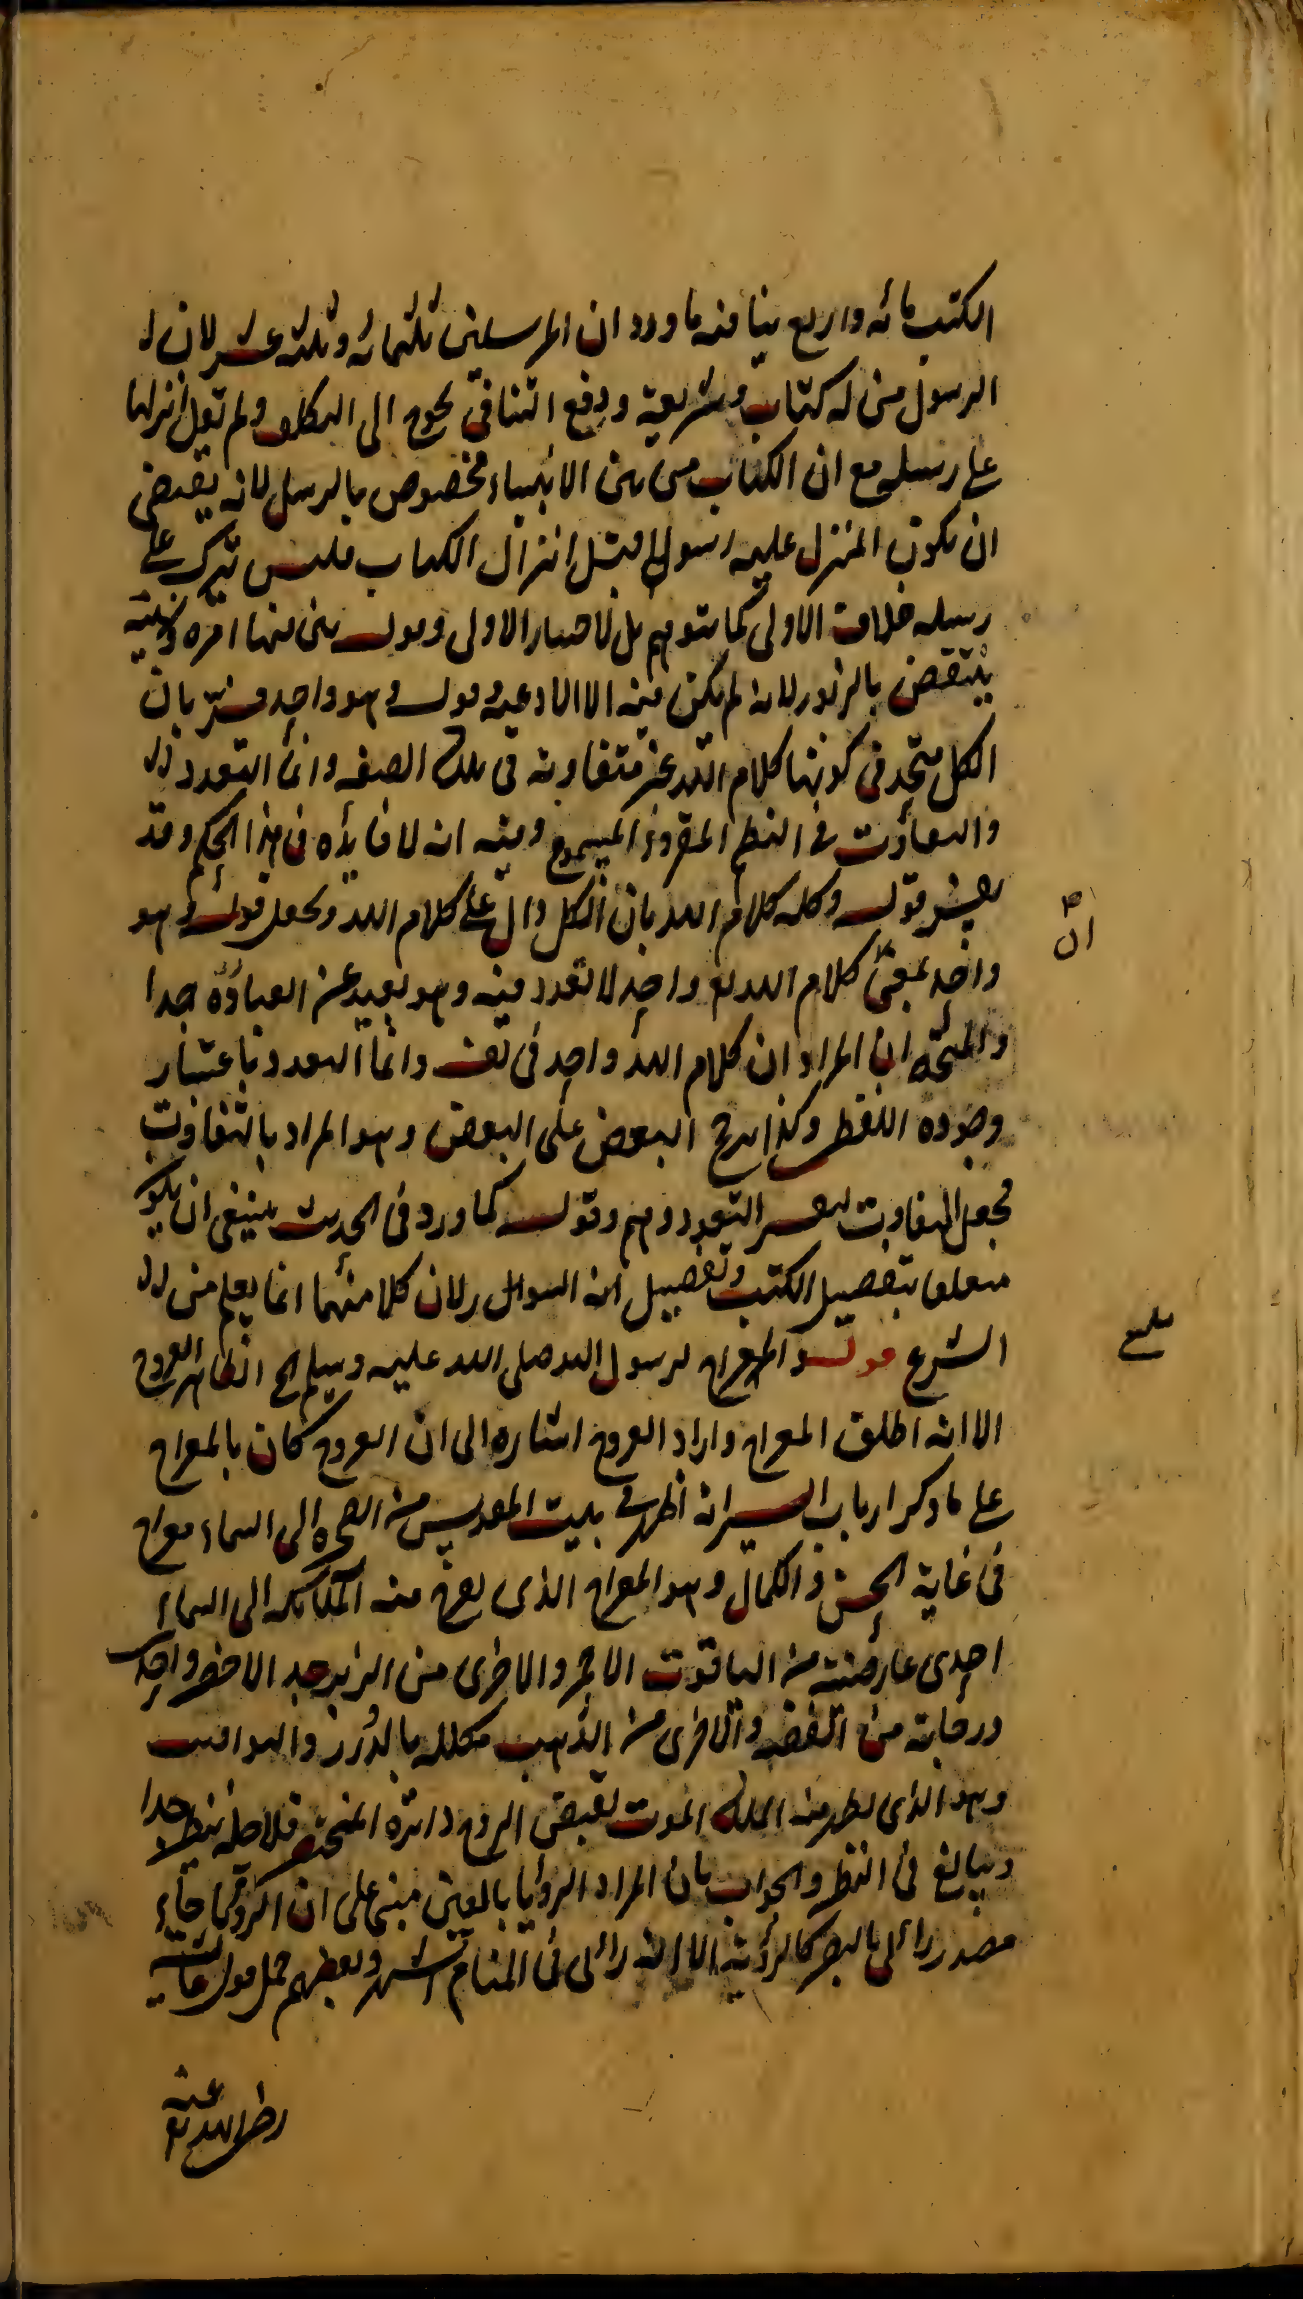 الكتب مائه واربع ينافيه ما ورد ان المرسلين ثلثمائه وثلثه عشر لان
الرسول من له كتاب وشريعة ودفع التنافي يحوج الى التكلف ولم يقل انزلها
على رسله مع ان الكتاب من بين الانبياء مخصوص بالرسل لانه يقتضي
ان يكون المنزل عليه رسولا قبل انزال الكتاب فليس ترك على
رسله خلاف الاولى كما يتوهم بل لاختيار الاولى وقوله بين فيها امره ونهيه
ينتقض بالزبور لانه لم يكن فيه الا الادعيه وقوله وهو واحد فسر بان
الكل متحد في كونها كلام الله غير متفاوته في تلك الصفه وانما التعدد
والتفاوت في النظم المقروء المسموع وفيه انه لا فايده في هذا الحكم وقد
يفسر قوله وكله كلام الله بان الكل دال على كلام الله ويجعل قوله وهو
واحد بمعنى كلام الله تع واحد لا تعدد فيه وهو بعيد عن العباره جدا
والمتجه ان المراد ان كلام الله واحد في نفسه وانما التعدد باعتبار
وجوده اللفظي وكذا ترجح البعض على البعض وهو المراد بالتفاوت
فجعل التفاوت تفسير التعدد وهم وقوله كما ورد في الحديث ينبغي ان يكون
متعلقا بتفضيل الكتب وتفضيل السور لان كلا منهما انما يعلم من
الشرع قوله والمعراج لرسول الله صلى الله عليه وسلم الخ الظاهر العروج
الا انه اطلق المعراج واراد العروج اشاره الى ان العروج كان بالمعراج
على ما ذكر ارباب السير انه اظهر في بيت المقدس من الصخره الى السماء معراج
في غاية الحسن والكمال وهو المعراج الذي يعرج منه الملائكه الى السماء
احدى عارضتيه من الياقوت الاحمر والاخرى من الزبرجد الاخضر واحدى
درجاته من الفضه والاخرى من الذهب مكلله بالدرر واليواقيت
وهو الذي يظهر منه الملك الموت لقبض الروح المحتضر فلاجله ينظر جدا
ويبالغ في النظر والجواب بان المراد الرؤيا بالعين مبني على ان الرؤيا جاء
مصدر رائى بالبصر كالرؤية الا انه رائى في المنام اشهر وبعضهم حمل قول عائشه
رضى الله تع عنها
ان